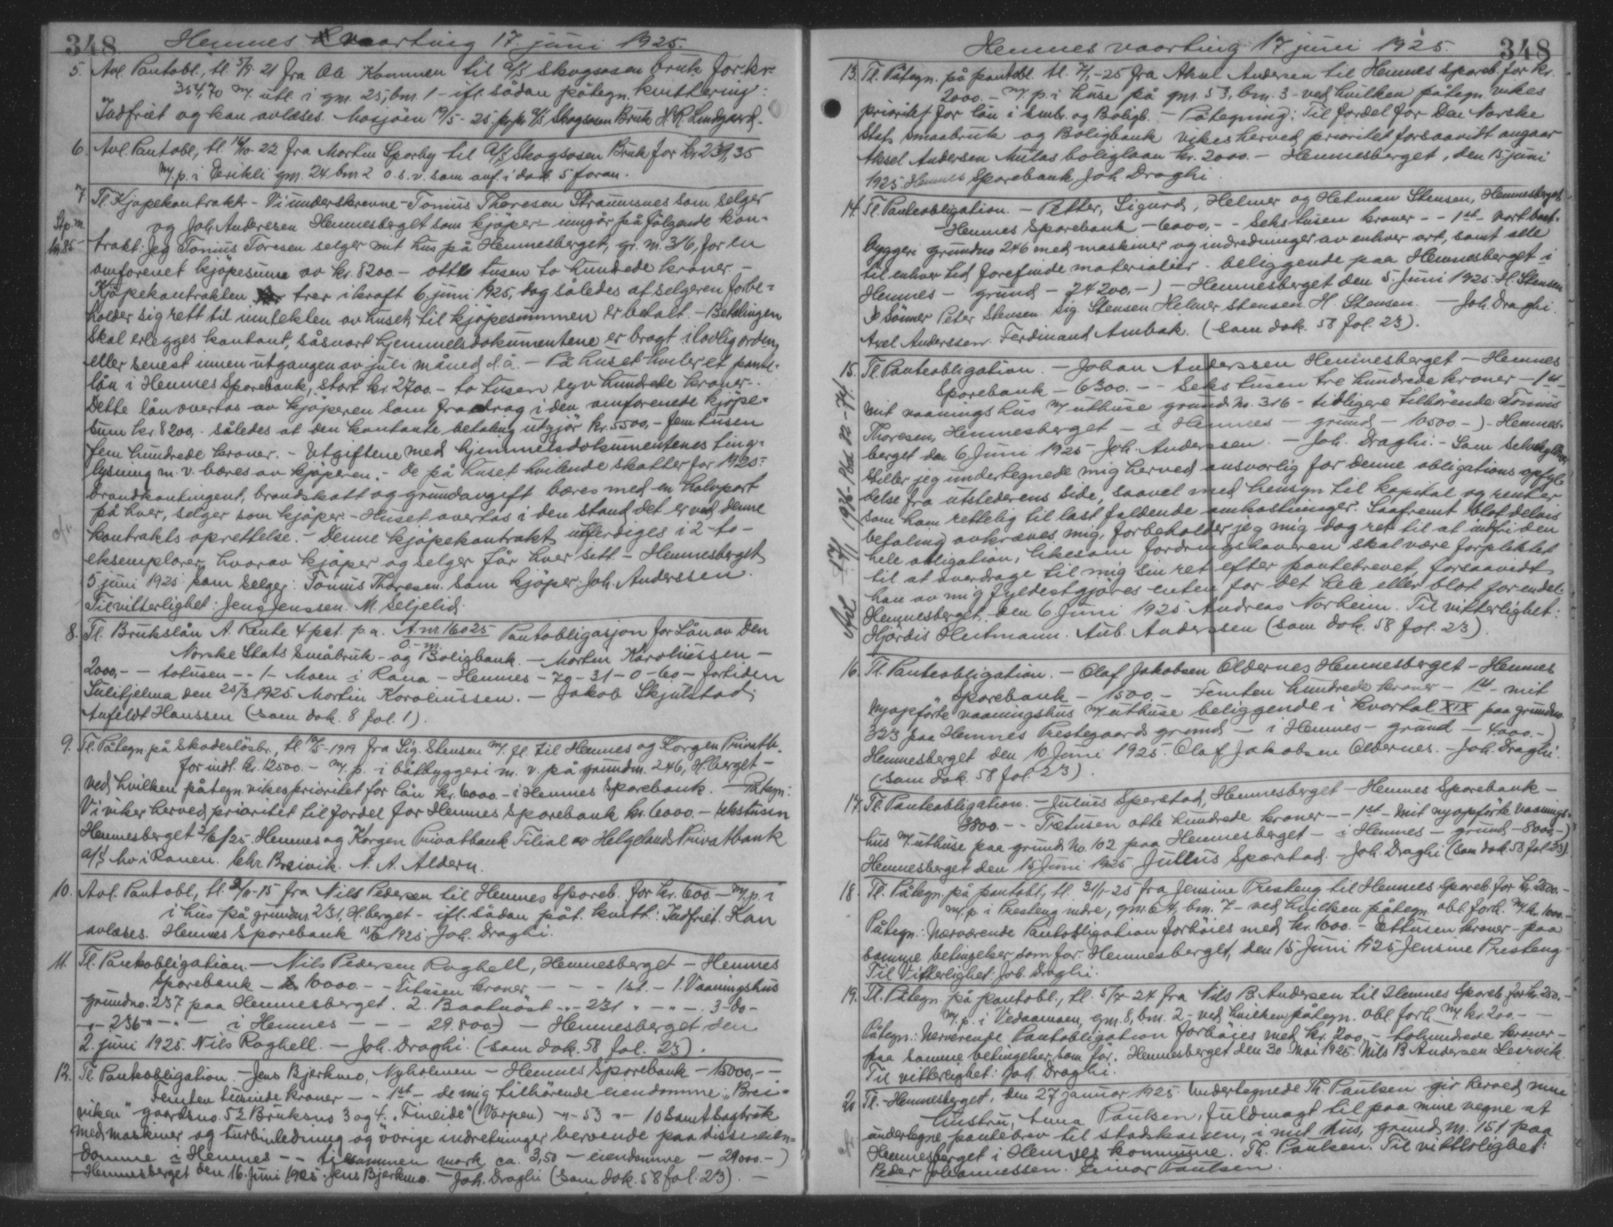 348
Hemnes vaarting 17. juni 1925.
5. Avl. Pantobl, tl. 21 fra Ole Kamnen til A/S Skogsosen bruk for kr.
354,70 m/ utl. i gnr. 25, bnr. 1 - ifl. sådan påtegn. kvittering:
Indfriet og kan avlæses. Mosjøen 25 pr. pr. A/S Skogsosen Bruk
6. Avl. Pantobl, tl. 22 fra Martin Sporby til A/S Skogsosen Bruk for kr. 239,35
m/ p. i gnr. 24 bnr. 2 o.s.v. som anf. i dok 5 foran.
7. Tl. Kjøpekontrakt - Vi underskrevne - Tomius Thoresen Straumsnes som selger
og Joh. Anderssen Hemnesberget som kjøper - inngår på følgende kon-
trakt: Jeg Tomius Toresen selger mit hus på Hemnesberget, gr. nr. 316, for en
omforenet kjøpesum av kr. 8200 - otte tusen to hundrede kroner. -
Kjøpekontrakten trer i kraft 6. juni 1925, dog således at selgeren forbe-
holder sig rett til av huset til kjøpesummen er betalt. - Betalingen
skal erlegges kontant, såsnart hjemmelsdokumentene er bragt i lovlig orden,
eller senest innen utgangen av juli måned d.å. - På huset hviler et pante-
lån i Hemnes Sparebank, stort kr. 2700 - to tusen syv hundrede kroner -
Dette lån overtas av kjøperen som fradrag i den omforenede kjøpe-
sum kr. 8200,- således at den kontante betaling utgjør kr. 5500,- fem tusen
fem hundrede kroner. - Utgiftene med hjemmelsdokumentenes ting-
lysning m.v. bæres av kjøperen. - De på huset hvilende skatter for 1925:
brandkontingent, brandskatt og grundavgift bæres med en halvpart
på hver, selger som kjøper. - Huset overtas i den stand det er ved denne
kontrakts oprettelse. - Denne kjøpekontrakt utferdiges i 2 - to -
eksemplarer, hvorav kjøper og selger får hver sitt. - Hemnesberget
5 juni 1925. Som selger: Tomius Thoresen. Som kjøper: Joh. Anderssen.
Til vitterlighet: Jens Jenssen. M. Seljelid.
8. Tl. Brukslån A. Rente 4 pct. p.a. A nr 16025 Pantobligasjon for Lån av Den
Norske Stats Småbruk - og Boligbank. - Morten Karoliussen -
2000,- - totusen - - 1 - Moen i Rana - Hemnes - 79 - 31 - 0 - 60 - førtiden
den 25/3 1925 Mortin Karoliussen. - Jakob Skjulstad;
Anfeldt Hanssen (som dok. 8 fol. 1).
9. Tl. Påtegn på Skadesløsbr., tl. 1919 fra Sig. Stensen m/ fl. til Hemnes og Korgen Privatb.
for indt. kr. 12500.- m/ p. i båtbyggeri m. v. på grundnr. 246, H.berget -
ved hvilken påtegn vikes prioritet for lån kr. 6000.- i Hemnes Sparebank. - Påtegn:
Vi viker herved prioritet til fordel for Hemnes Sparebank kr. 6000.- sekstusen
Hemnesberget 2/6/25. Hemnes og Korgen Privatbank Filial av Helgelands Privatbank
a/s Mo i Ranen. Chr. Breivik. N. A. Aldern.
10. Avl. Pantobl, tl. 15 fra Nils Pedersen til Hemnes Spareb. for kr. 600 - m/ p. i
i hus på grundnr. 231, H.berget - ifl. sådan påt. kvitt: Indfriet. Kan
avlæses. Hemnes Sparebank 15/6 1925 Joh. Draghi.
11. Tl. Pantobligation - Nils Pedersen Roghell, Hemnesberget - Hemnes
Sparebank - 10000.- - Titusen kroner - - - 1st. - 1. Vaaningshus
grundno. 257 paa Hemnesberget. 2 Baatnøst - " - 231 " - " - 3 - do -
- " - 236 " - " - i Hemnes - - - 29.800.-) - Hemnesberget den
2. juni 1925. Nils Roghell. - Joh. Draghi. (som dok. 58 fol. 23).
12. Tl. Pantobligation. - Jens Bjerkmo, Nyholmen - Hemnes Sparebank - 15000.- -
Femten tusinde kroner - - 1st - de mig tilhørende eiendomme "Brei-
viken" gaardsno 52 Bruksno 3 og 4. "Fineide" (Varpen) - " - 53 " - 10 samt Sagbruk
med maskiner og turbinledning og øvrige indretninger beroende paa disse eien-
domme i Hemnes - - tilsammen mark ca. 3,50 - eiendomme - 29000.-)
Hemnesberget den 16. Juni 1925. Jens Bjerkmo. - Joh. Draghi (som dok. 58 fol. 23). -
Hemnes vaarting 17 juni 1925.
348
13. Tl. Påtegn. på pantobl. tl. 25 fra Aksel Andersen til Hemnes Spareb. for kr.
2000.- m/ p. i huse på gnr. 53, bnr. 3 - ved hvilken påtegn vikes
prioritet for lån i Småb. og Boligb. - Påtegning: Til fordel for Den Norske
Stats Smaabruk og Boligbank vikes herved prioritet forsaavidt angaar
Aksel Andersen boliglaan kr. 2000.- Hemnesberget, den 15 juni
1925 Hemnes Sparebank Joh. Draghi.
14. Tl. Panteobligation. - Petter, Sigurd, Helmer og Hetman Stensen, Hemnesberget
- Hemnes Sparebank - 6000.- - Seks tusen kroner - - 1st - vort baat-
byggeri grundno 246 med maskiner og indredninger av enhver art, samt alle
til enhver tid forefinde materialier. beliggende paa Hemnesberget i
Hemnes - grund - 24200.-) - Hemnesberget den 5 Juni 1925. H. Stensen
& Sønner Peter Stensen Sig. Stensen Helmer Stensen H. Stensen. - Joh. Draghi.
Axel Anderssen Ferdinand Ambak. (som dok. 58 fol. 23).
15. Tl. Panteobligation. - Johan Anderssen Hemnesberget - Hemnes
Sparebank - 6300.- - Seks tusen tre hundrede kroner - 1st -
mit vaaningshus m/ uthuse grund no. 316 - tidligere tilhørende Tomius
Thoresen, Hemnesberget - i Hemnes - grund - 10500.-) Hemnes-
berget den 6 Juni 1925 Joh. Anderssen. - Joh. Draghi. - Som selvskyldner
stiller jeg undertegnede mig herved ansvarlig for denne obligations opfyl-
delse fra utstederens side, saavel med hensyn til kapital og renter
som ham rettelig til last faldende omkostninger. Saafremt blot delvis
betaling avkræves mig, forbeholder jeg mig dog ret til at indfri den
hele obligation, likesom fordringshaveren skal være forpliktet
til at overdrage til mig sin ret efter pantebrevet, forsaavidt
han av mig fyldestgjøres enten for det hele eller blot for endel.
Hemnesberget den 6 Juni 1925 Andreas Norheim. Til vitterlighet:
Hjørdis Heitmann. Aub. Anderssen (som dok. 58 fol. 23).
16. Tl. Panteobligation. - Olaf Jakobsen Oldernes Hemnesberget - Hemnes
Sparebank - 1500.- - Femten hundrede kroner - 1st - mit
nyopførte vaaningshus m/ uthuse beliggende i Kvartal XIX paa grundno
323 paa Hemnes Prestegaards grund - i Hemnes - grund - 4000.-)
Hemnesberget den 10 Juni 1925. Olaf Jakobsen Oldernes. - Joh. Draghi.
(som dok. 58 fol 23).
17. Tl. Panteobligation. - Julius Sperstad, Hemnesberget - Hemnes Sparebank -
3800.- - Tretusen otte hundrede kroner - - 1st - mit nyopførte vaanings-
hus m/ uthuse paa grund no. 102 paa Hemnesberget - i Hemnes - grund - 8000.-)
Hemnesberget den 15 Juni 1925 Julius Sperstad - Joh. Draghi (som dok 58 fol 23).
18. Tl. Påtegn. på pantobl. tl. 25 fra Jensine Presteng til Hemnes Spareb. for kr. 2500.-
m/ p. i Presteng indre, gnr. 64, bnr. 7 - ved hvilken påtegn. obl. forh. m/ kr. 1000.-
Påtegn.: Nærværende Pantobligation forhøies med kr. 1000.- Ettusen kroner - paa
samme betingelser som før. Hemnesberget, den 15 Juni 1925 Jensine Presteng -
Til Vitterlighet Joh. Draghi.
19. Tl. Påtegn. på pantobl., tl. 24 fra Nils B Andersen til Hemnes Spareb. for kr. 250.-
m/ p. i Vedaamoen, gnr. 8, bnr. 2 - ved hvilken påtegn. obl. forh. m/ kr. 200.-
Påtegn: Nærværende Pantobligation forhøies med kr. 200.- tohundrede kroner -
paa samme betingelser som før. Hemnesberget den 30 Mai 1925. Nils B Andersen Leirvik.
Til vitterlighet: Joh. Draghi.
Tl. Hemnesberget, den 27 januar 1925. Undertegnede Th. Paulsen gir herved min
hustru, Anna Paulsen, fuldmagt til paa mine vegne at
undertegne pantebrev til stadskassen, i mit hus, grund nr. 151 paa
Hemnesberget i Hemnes kommune. Th. Paulsen. Til vitterlighet:
Peder Johannessen. Einar Paulsen.